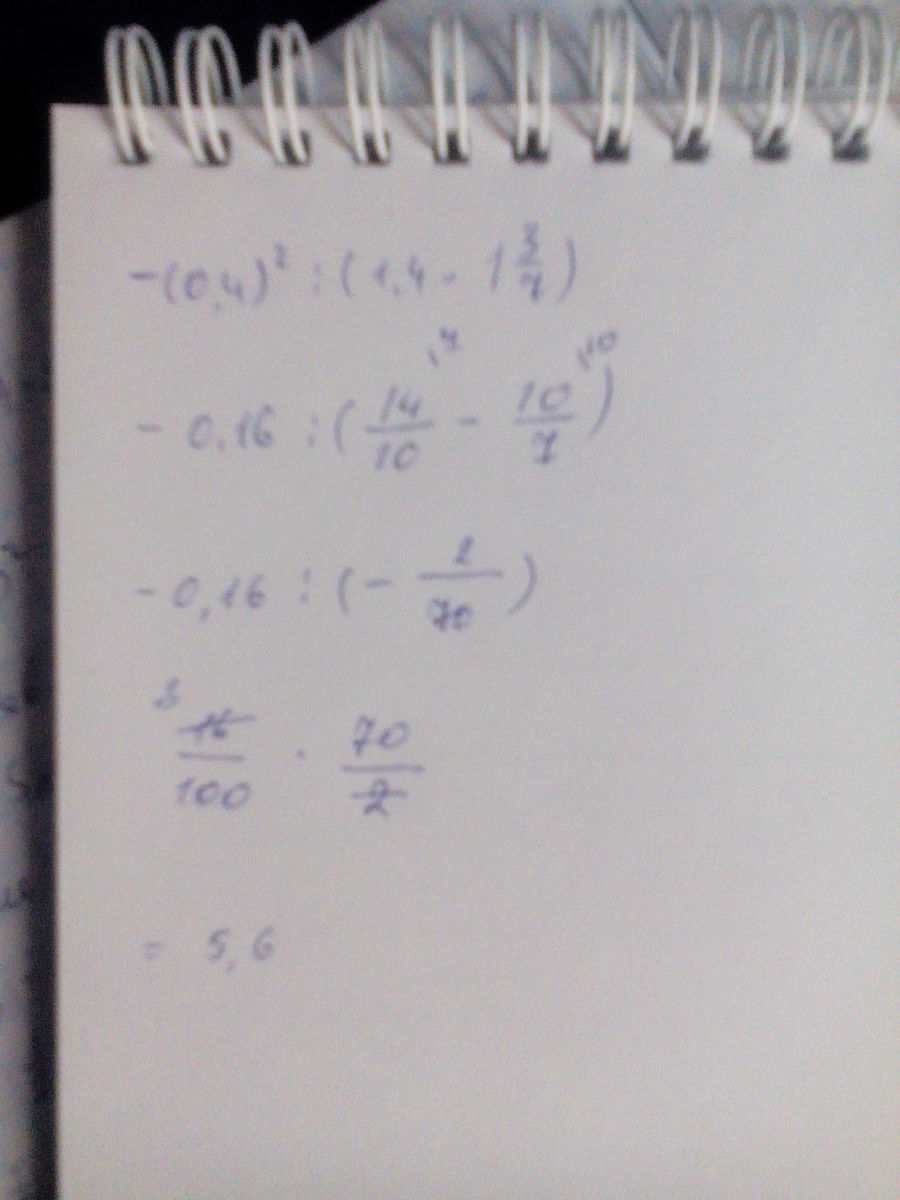 -(0,4)² : (1,4 - 1 3/7)
- 0,16 : (14/10 ,7 - 10/7 ,10)
- 0,16 : (- 2/70)
8 16/100 · 70/2
= 5,6